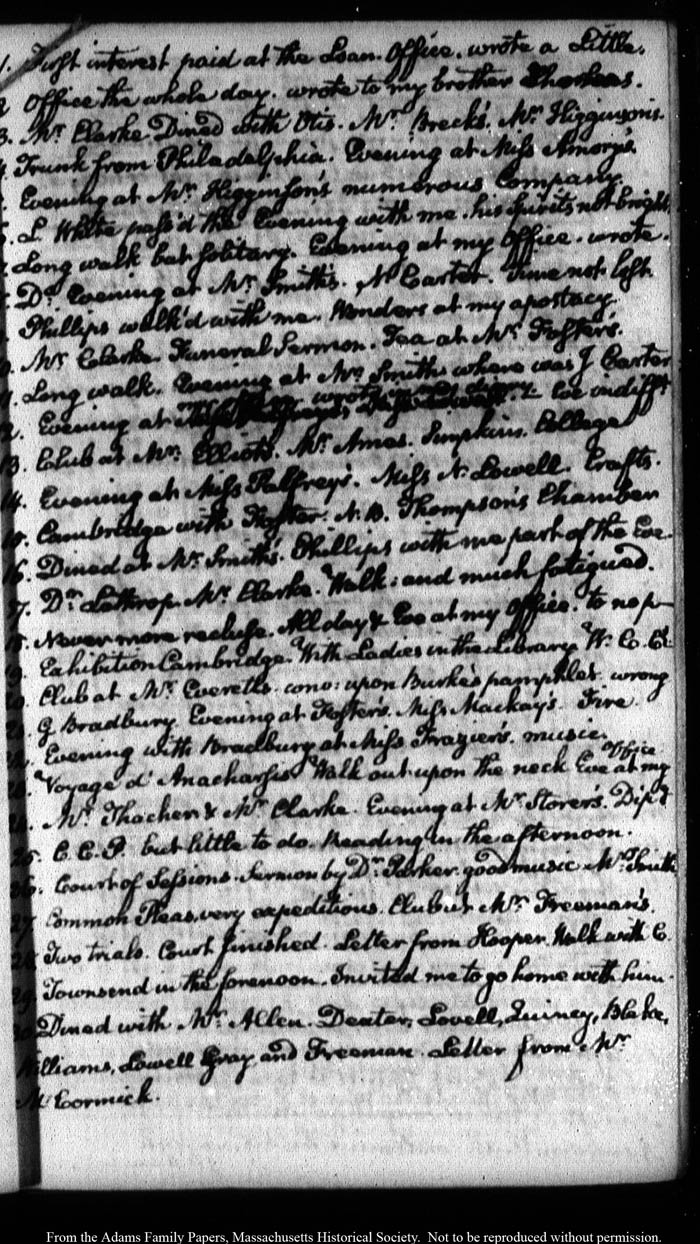 1. First interest paid at the Loan Office. wrote a Little.
2 Office the whole day. wrote to my brother Thomas.
3. Mr Clarke. Dined with Otis. Mr Breck's. Mr Higginson's.
4. Trunk from Philadelphia. Evening at Miss Amory's
Evening at Mr Higginson's numerous Company.
L White pass'd the Evening with me. his spirits not bright.
Long walk but solitary. Evening at my Office. wrote.
Do. Evening at Mr Smith's. N Carter. Time not lost
Phillips walk'd with me. Wonders at my apostacy.
Mr Clarke. Funeral Sermon. Tea at Mr Foster's.
11. Long walk. Evening at Mrs Smith where was J Carter
12. Evening at & Eve indifft
13. Club at Mr Elliot's. Mr Ames. Simpkins. College
14. Evening at Miss Palfrey's. Miss N. Lowell. Crafts.
15. Cambridge with Foster. N. B. Thompson's Chamber
16. Dined at Mr Smith's. Phillips with me part of the Eve.
17. Dr Lathrop. Mr Clarke. Walk: and much fatigued.
18. Never more recluse. All day & Eve at my Office. to no p
19. Exhibition Cambridge. With Ladies in the Library. W. C. C's
20. Club at Mr Everett's. conv: upon Burke's pamphlet. wrong
21. G Bradbury. Evening at Foster's. Miss Mackay's. Fire.
22. Evening with Bradbury at Miss Frazier's. music.
23. Voyage d'Anacharsis. Walk out upon the neck Eve at my Office
24. Mr Thacher & Mr Clarke. Evening at Mr Storer's. Dipt
25. C. C. P. but little to do. Reading in the afternoon.
26. Court of Sessions. Sermon by Dr Parker. good music Mr Smith
27 Common Pleas, very expeditious. Club at Mr Freeman's.
28 Two trials. Court finished. Letter from Hooper. Walk with C.
29. Townsend in the forenoon. Invited me to go home with him.
30 Dined with Mr Allen. Dexter, Lovell, Quincy, Blake,
Williams, Lowell Gray and Freeman. Letter from Mr
McCormick.
From the Adams Family Papers, Massachusetts Historical Society. Not to be reproduced without permission.